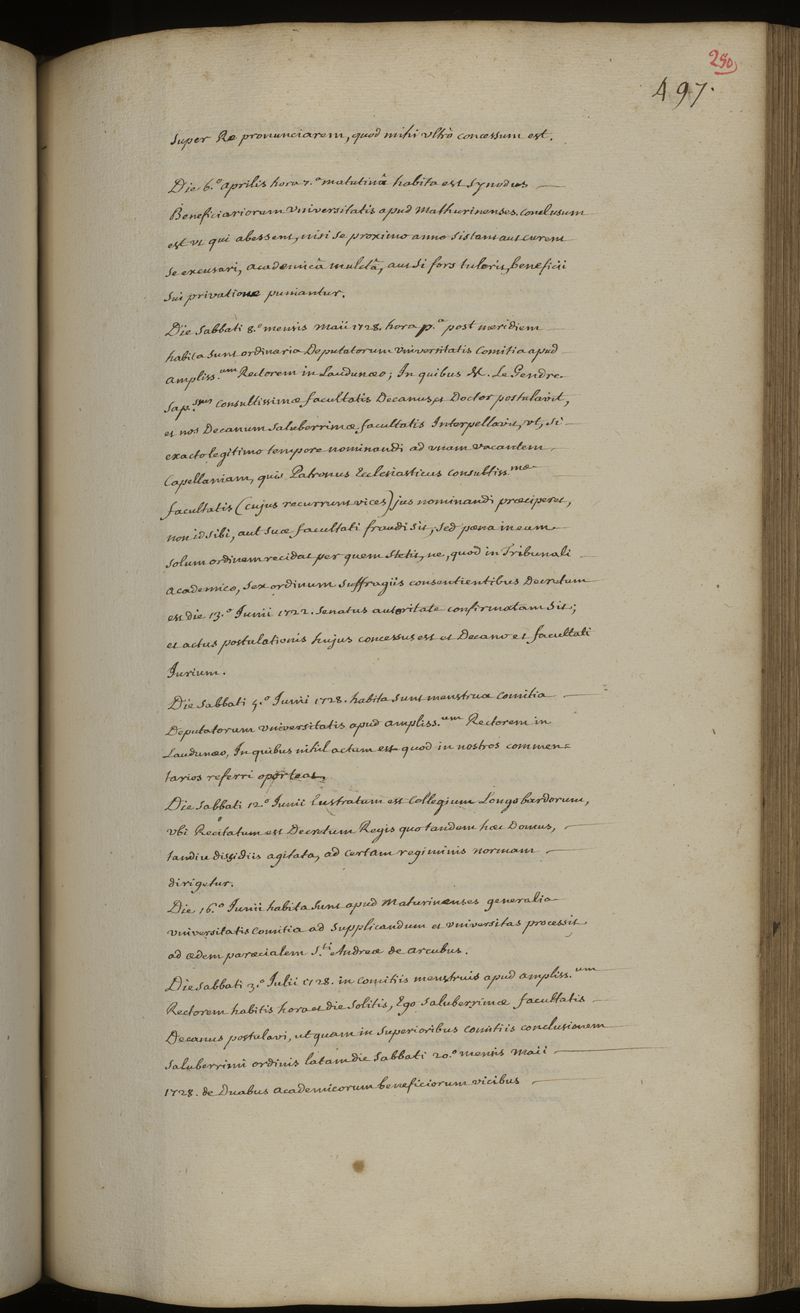 250
497.
Super Re pronunciarem, quod mihi ultrò concessum est.
Die 6.º aprilis hora 7.ª matutinâ habita est Synodus
Beneficiariorum Universitatis apud Mathurinenses. Conclusum
est ut qui abessent, nisi se proximo anno sistant aut curent
se excusari, academicâ mulctâ, aut si fors tulerit, beneficii
sui privatione puniantur.
Die Sabbati 8.º mensis Maii 1728. hora p.ª post meridiem
habita sunt ordinaria Deputatorum Universitatis Comitia apud
Ampliss.um Rectorem in Laudunæo; In quibus M. Le Gendre
Consultissimæ facultatis Decanus, et Doctor postulavit,
et nos Decanum Saluberrimæ facultatis Interpellavit, ut, si
exacto legitimo tempore nominandi ad unam vacantem
Capellaniam, quis Patronus Ecclesiasticus Consultiss.mæ
facultatis (cujus recurrunt vices) jus nominandi præciperet,
non id sibi, aut suæ facultati fraudi sit, sed pœna in eum
solum ordinem recidat per quem stetit, ne, quod in Tribunali
Academico, sex ordinum suffragiis consentientibus Decretum
est die 13.º Junii 1722. Senatus autoritate confirmatam sit;
et actus postulationis hujus concessus est et Decano et facultati
Jurium.
Die Sabbati 5.º Junii 1728. habita sunt menstrua Comitia
Deputatorum Universitatis apud Ampliss.um Rectorem in
Laudunæo, In quibus nihil actum est quod in nostros commen=
tarios referri oporteat,
Die Sabbati 12.º Junii Lustratum est Collegium Longobardorum,
Ubi Recitatum est Decretum Regis quo tandem hæc Domus,
tandiu dissidiis agitata, ad certam regiminis normam
dirigetur.
Die 16.º Junii habita sunt apud Maturinenses generalia
Universitatis Comitia ad Supplicandum et Universitas processit
ad ædem parœcialem S.ti Andreæ de arcubus.
Die Sabbati 3.º Julii 1728. in Comitiis menstruis apud ampliss.um
Rectorem habitis hora et die solitis, Ego Saluberrimæ facultatis
Decanus postulavi, ut quam in superioribus Comitiis conclusionem
Saluberrimi ordinis latam die Sabbati 20.º mensis Maii
1728. de Duabus academicorum beneficiorum vicibus